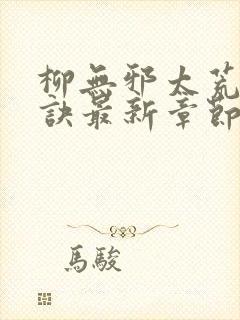 柳無邪太荒
訣最新章節
馬駿